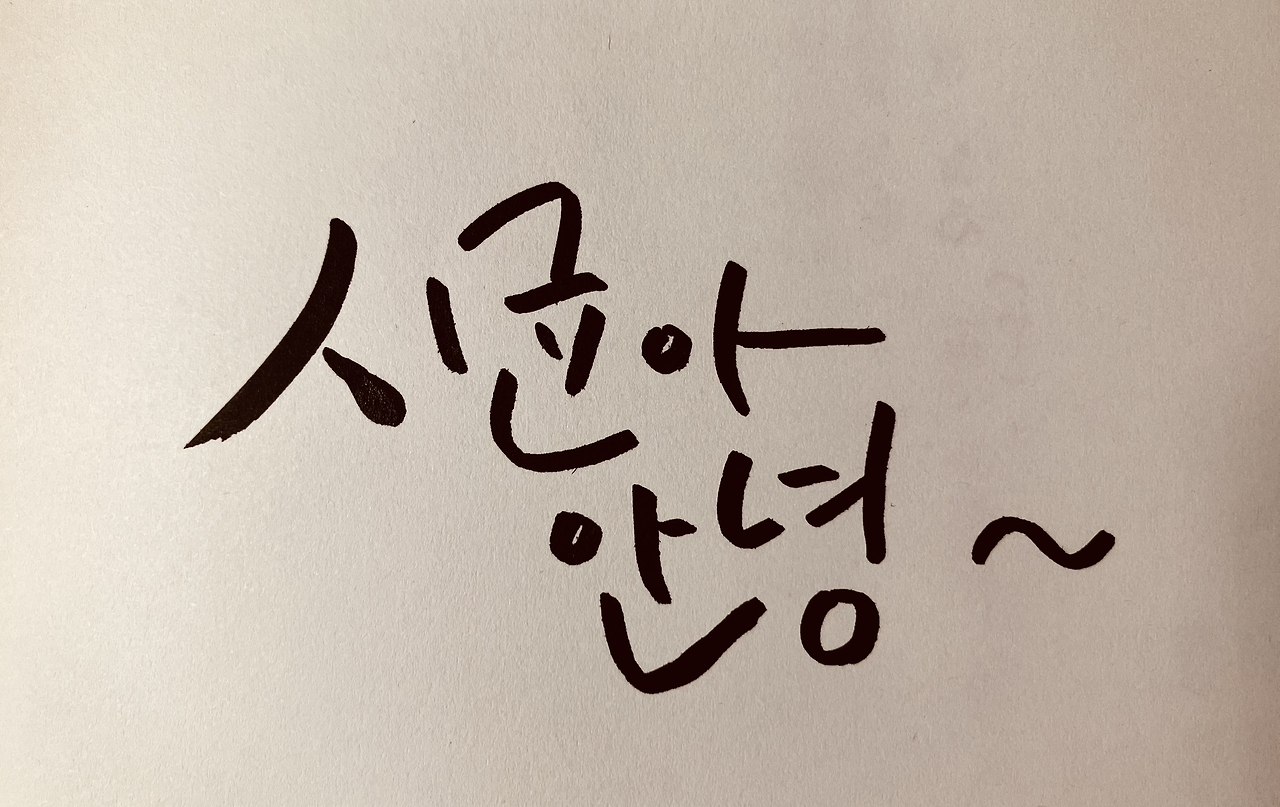 시균아
안녕~